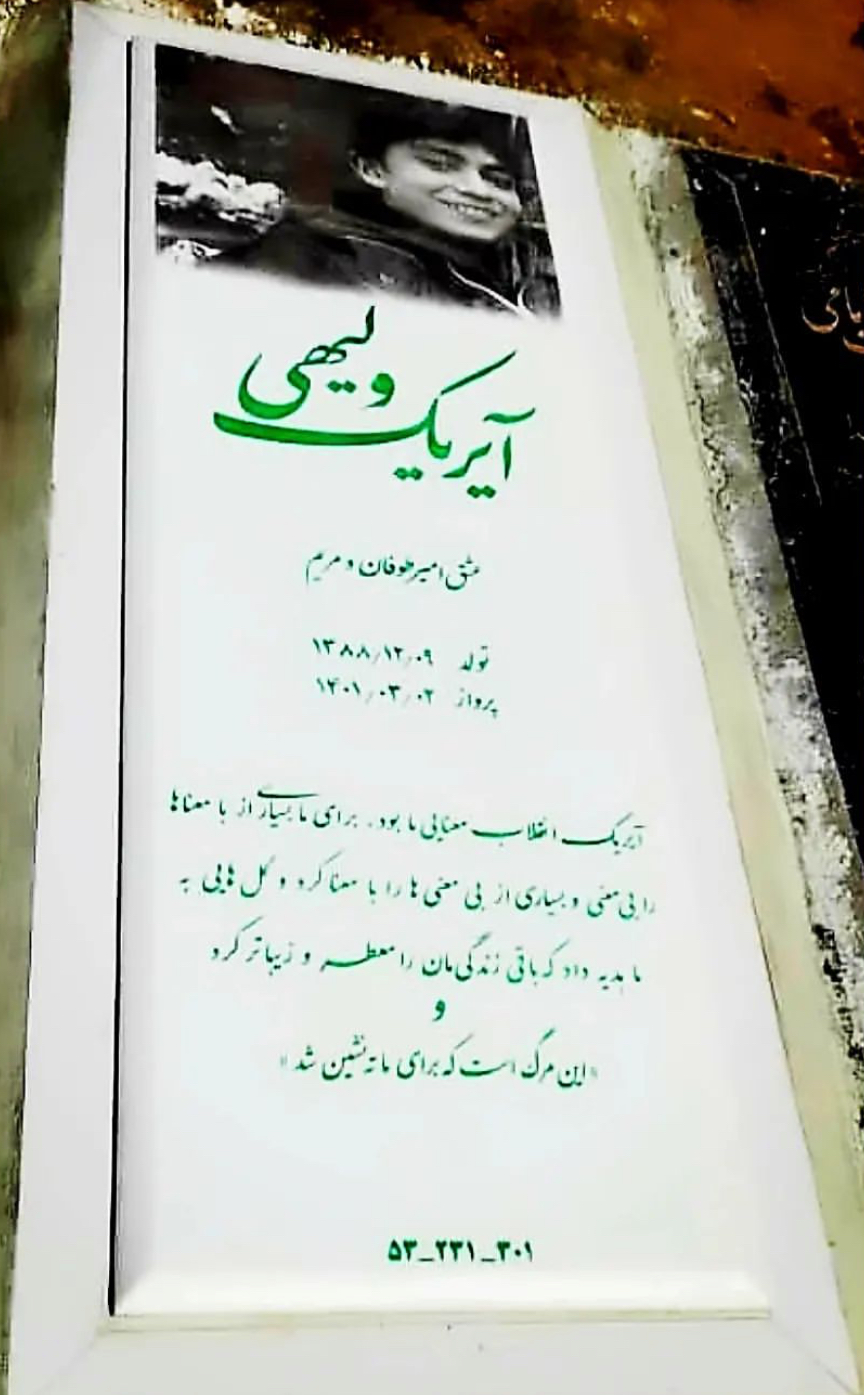 ولیهی
آیریک
عشق امیرطوفان و مریم
تولد ۱۳۸۸/۱۲/۰۹
پرواز ۱۴۰۱/۰۳/۰۲
آیریک انقلاب معنایی ما بود. برای ما بسیاری از با معناها
را بی معنی و بسیاری از بی معنی ها را با معنا کرد و گل هایی به
ما هدیه داد که باقی زندگی مان را معطر و زیباتر کرد
و
«این مرگ است که برای ما ته نشین شد»
۵۳_۲۳۱_۳۰۱